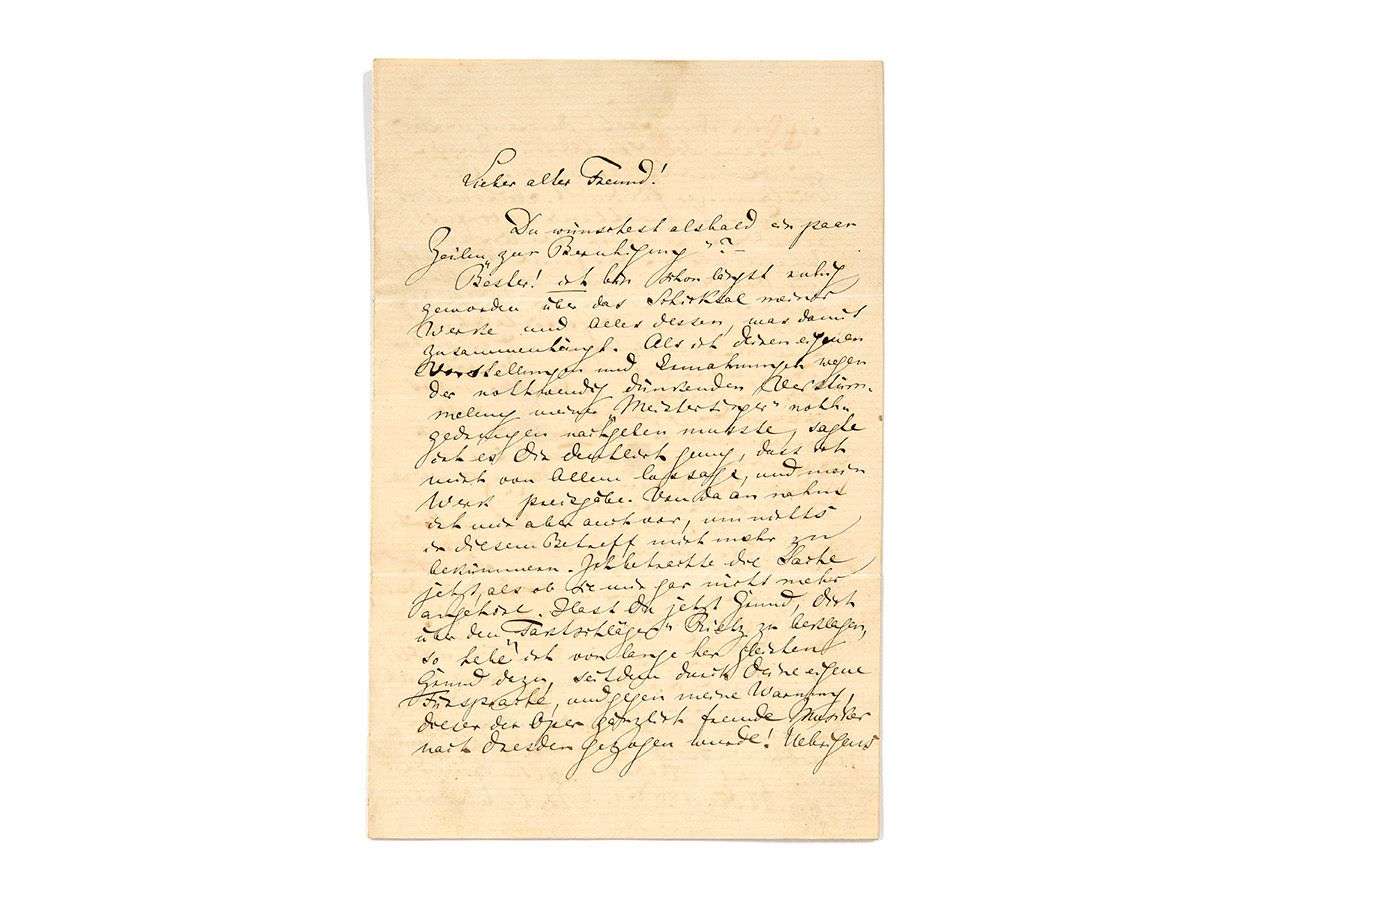 Lieber alter Freund!
Du wünschest alsbald ein paar
Zeilen „zur Beruhigung“? –
Bester! ich bin schon längst ruhig
geworden über das Schicksal meiner
Werke und Alles dessen, was damit
zusammenhängt. Als ich deinen eigenen
Vorstellungen und Ermahnungen wegen
der nothwendig dünkenden Verstüm-
melung meiner „Meistersinger“ noth-
gedrungen nachgeben musste, sagte
ich es Dir deutlich genug, dass ich
mich von Allem lossage, und mein
Werk preisgäbe. Von da an nahm
ich mir aber auch vor, um nichts
in diesem Betreff mich mehr zu
bekümmern. Ich betrachte die Sache
jetzt, als ob sie mir gar nichts mehr
angehöre. Hast Du jetzt Grund, Dich
über den „Taktschläger“ Rietz zu beklagen,
so hätte ich von lange her gleichen
Grund dazu, seitdem durch Deine eigene
Fürsprache, und gegen meine Warnung,
dieser der Oper gänzlich fremde Musiker
nach Dresden gezogen wurde! Uebrigens